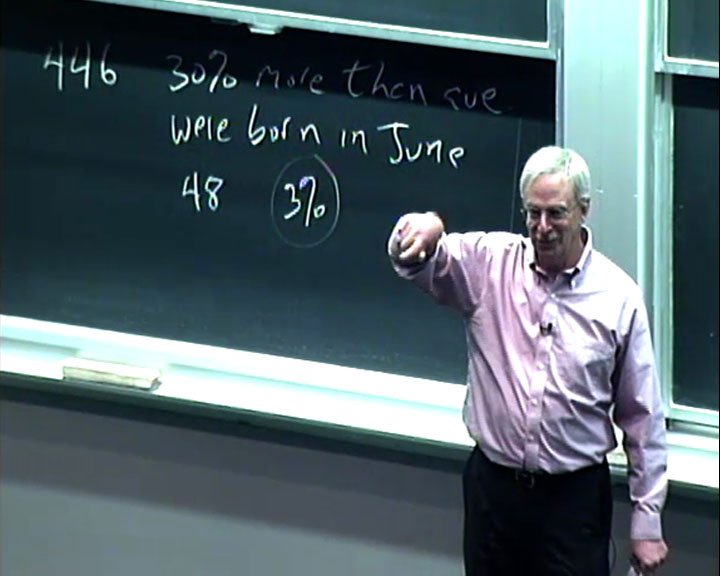 446 30% more then ave
were born in June
48 3%